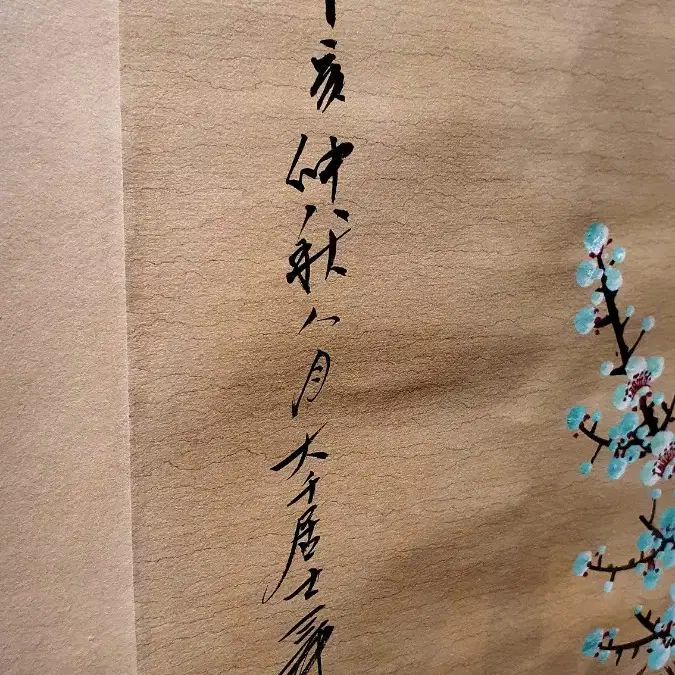 亥仲秋八月大千居士爰